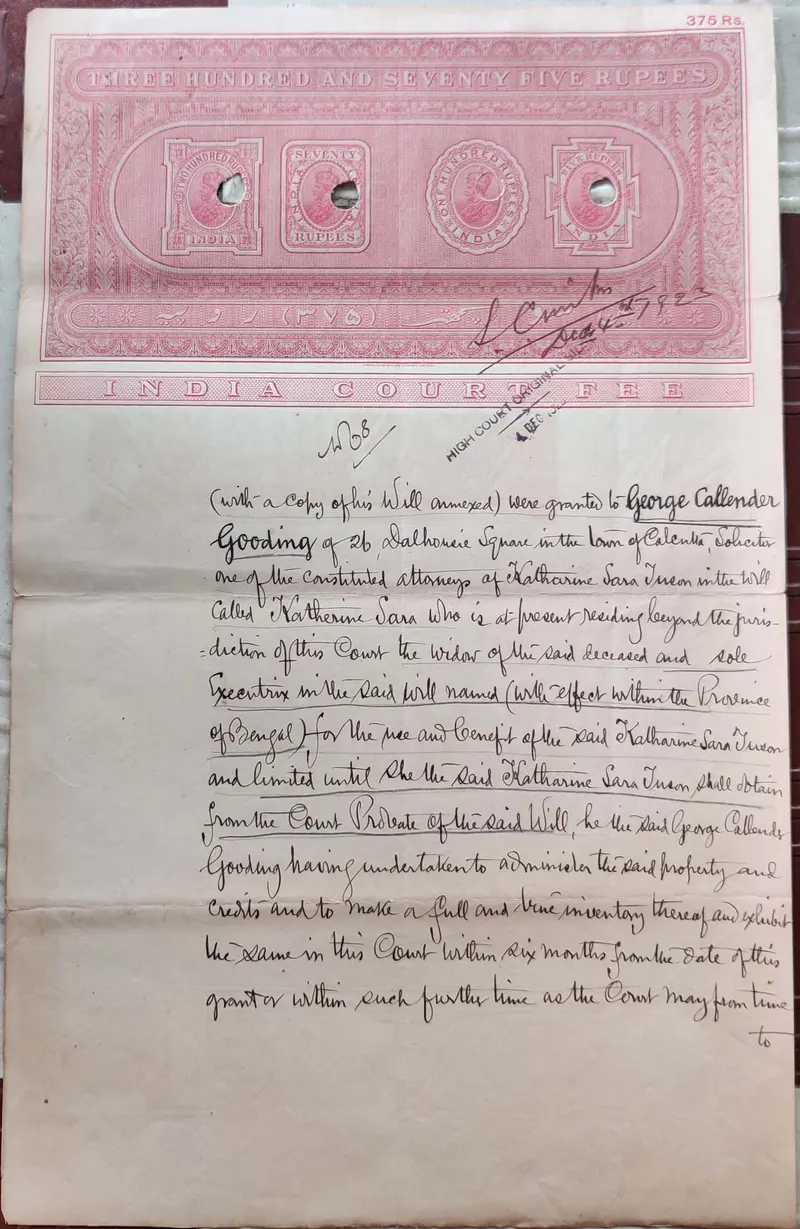 375 Rs.
THREE HUNDRED AND SEVENTY FIVE RUPEES
TWO HUNDRED RUPEES
INDIA
SEVENTY
INDIA
RUPEES
ONE HUNDRED RUPEES
INDIA
FIVE RUPEES
INDIA
(۳۷۵)
Dec 4th 1923
INDIA COURT FEE
HIGH COURT ORIGINAL SIDE
4 DEC 1923
(with a copy of his Will annexed) were granted to George Callender
Gooding of 26, Dalhousie Square in the town of Calcutta, Solicitor
one of the constituted attorneys of Katharine Sara Tuson in the Will
called Katherine Sara who is at present residing beyond the juris-
=diction of this Court the widow of the said deceased and sole
Executrix in the said Will named (with effect within the Province
of Bengal) for the use and benefit of the said Katharine Sara Tuson
and limited until she the said Katharine Sara Tuson shall obtain
from the Court Probate of the said Will, he the said George Callender
Gooding having undertaken to administer the said property and
credits and to make a full and true inventory thereof and exhibit
the same in this Court within six months from the date of this
grant or within such further time as the Court may from time
to